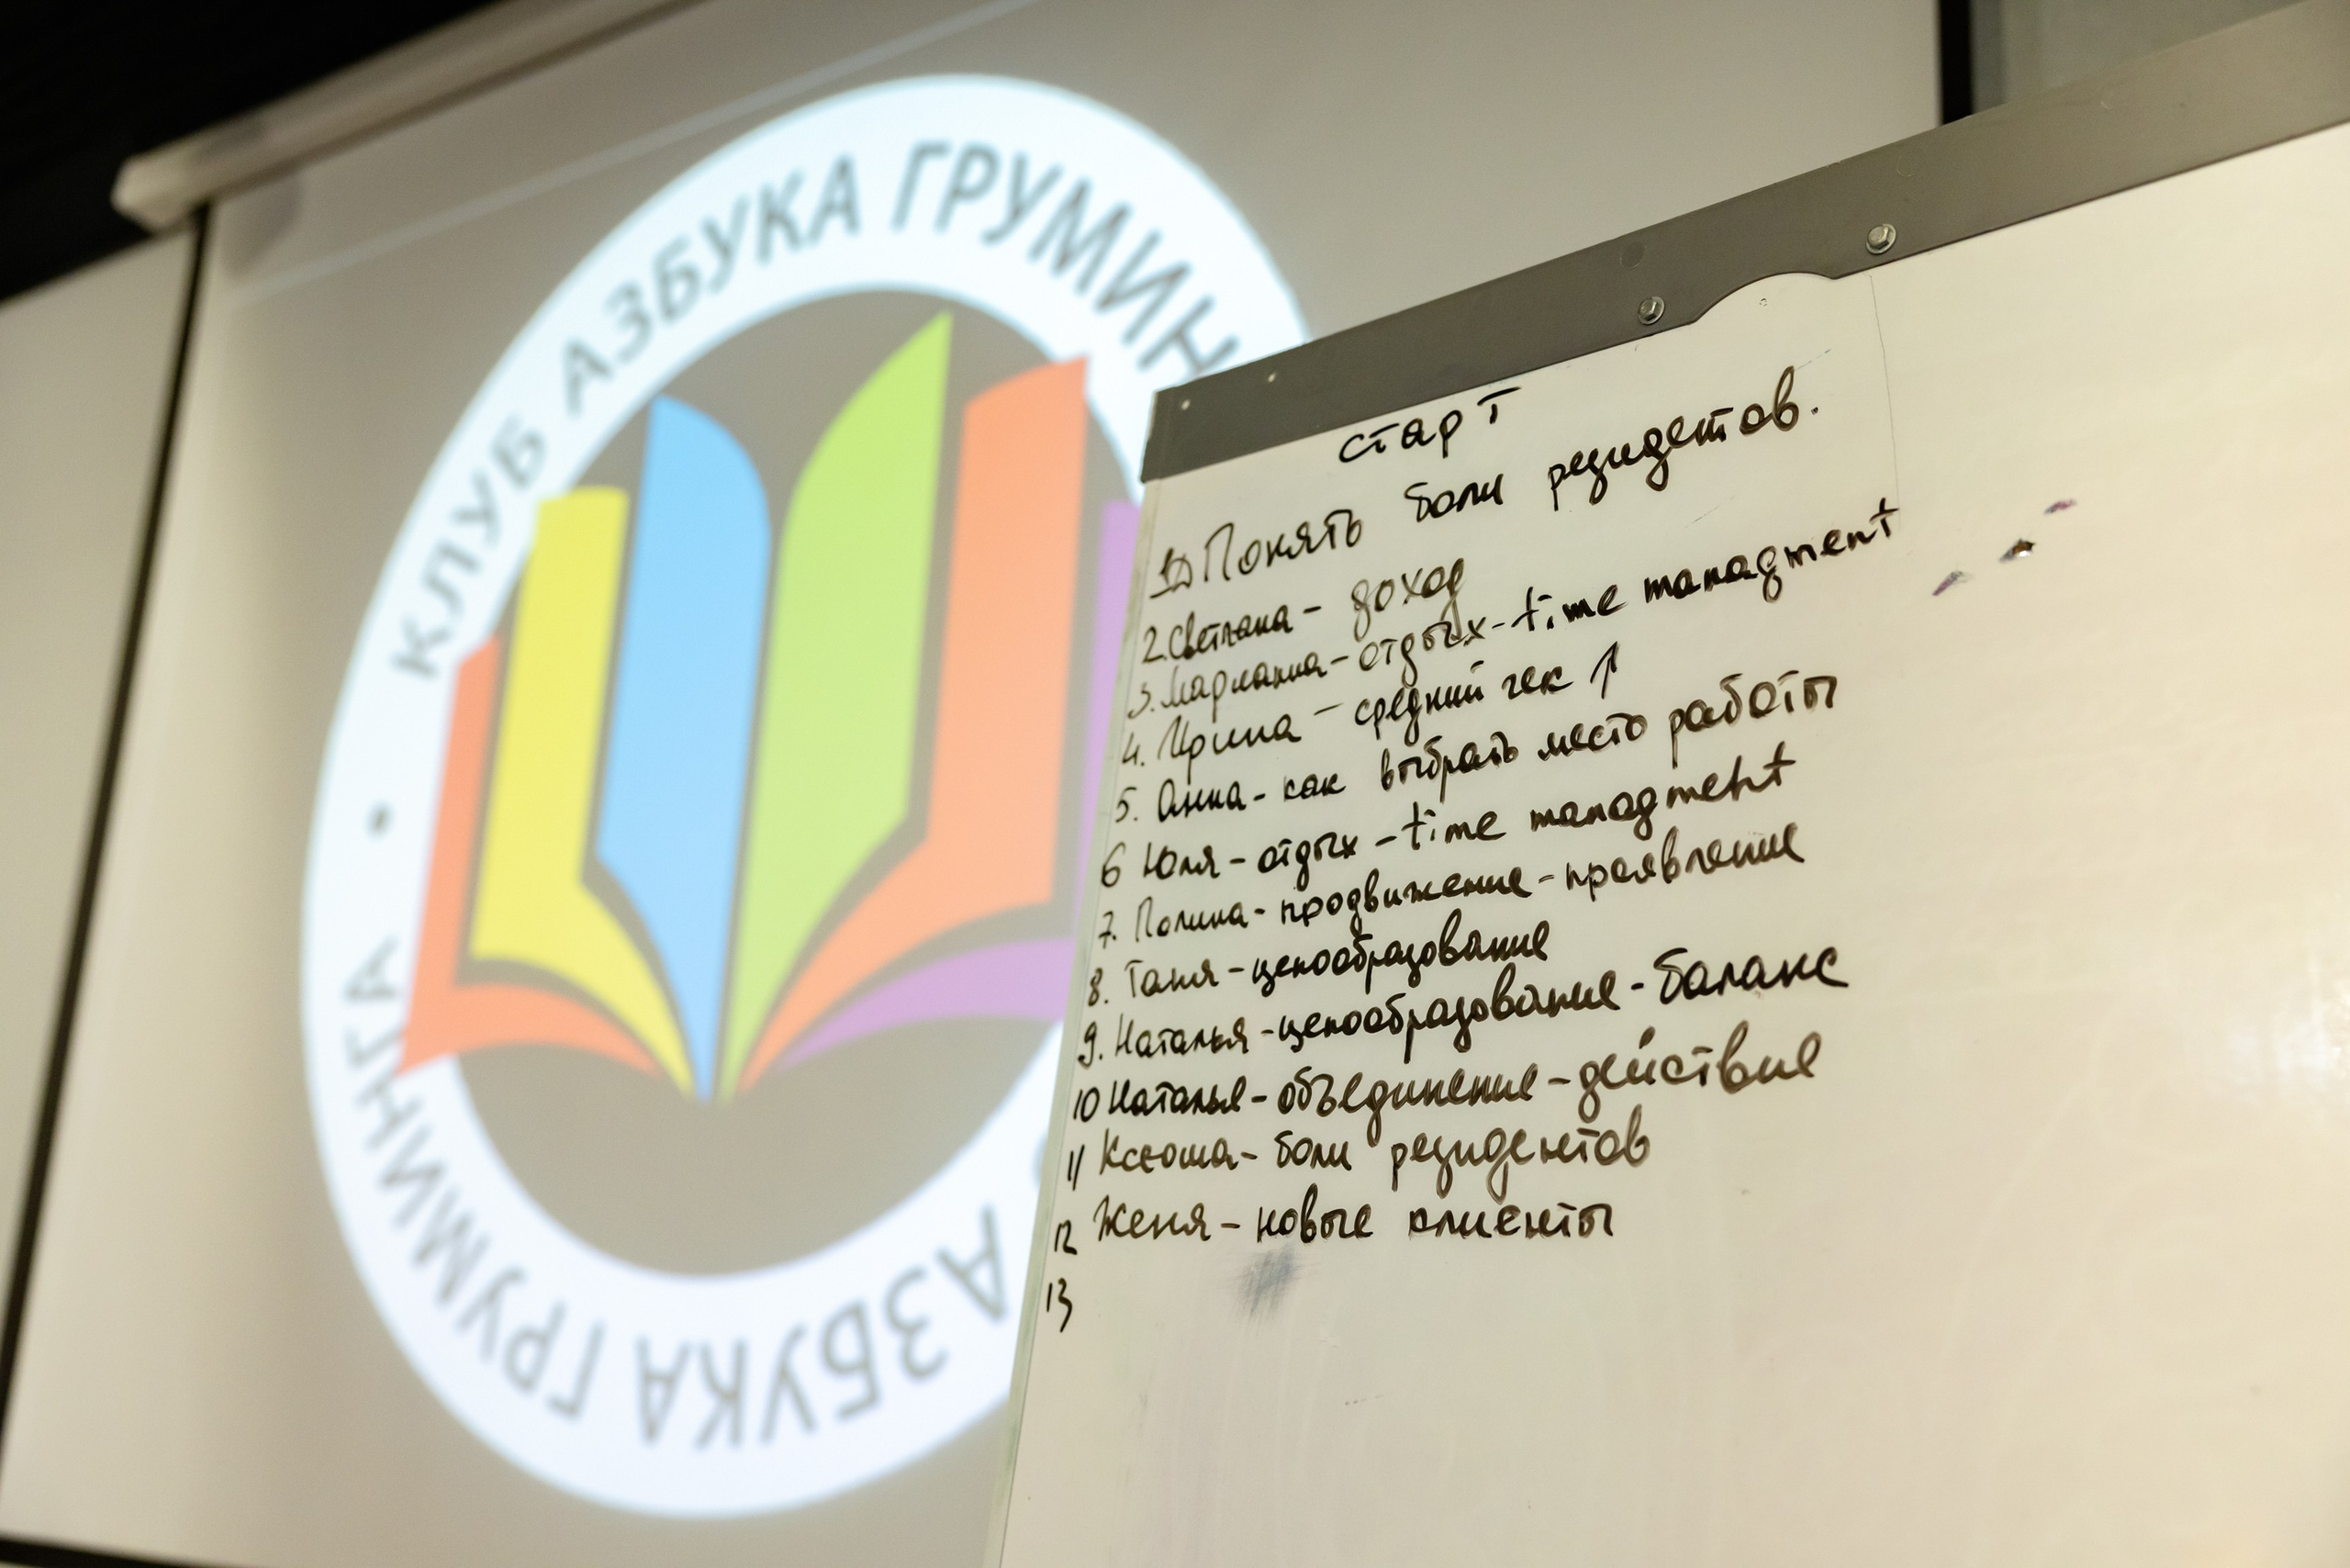 КЛУБ АЗБУКА ГРУМИН
АЗБУКА ГРУМИНГА
старт
1) Понять боли резидетов.
2. Светлана - доход
3. Марианна - отдых - time managment
4. Ирина - средний чек ↑
5. Анна - как выбрать место работы
6 Юля - отдых - time managment
7. Полина - продвижение - проявление
8. Таня - ценообразование
9. Наталья - ценообразование - баланс
10 Наталья - объединение - действие
11 Ксюша - боли резидентов
12 Женя - новые клиенты
13